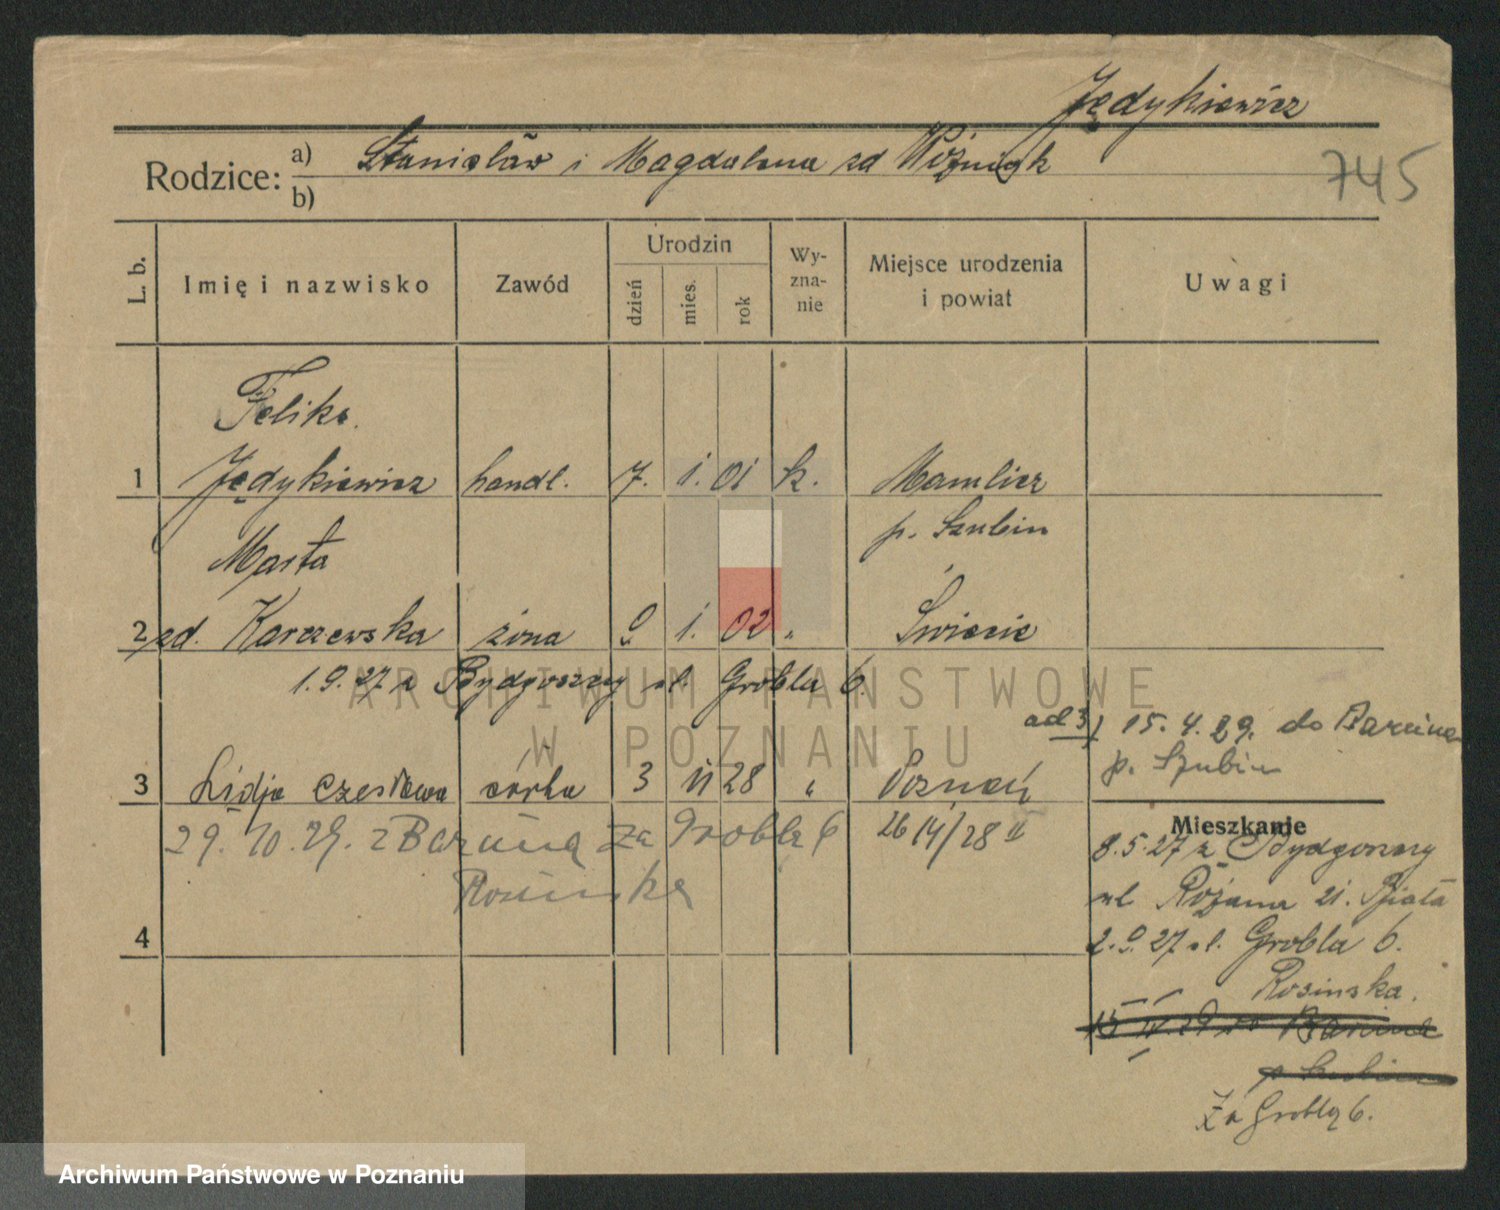 Jędykiewicz
Rodzice: a) Stanisław i Magdalena zd Woźniak
b)
745
L. b. Imię i nazwisko Zawód Urodzin dzień mies. rok Wy-zna-nie Miejsce urodzenia i powiat Uwagi
Feliks
1 Jędykiewicz handl. 7. 1. 01 k. Mamlicz
p. Szubin
Marta
2 zd. Karczewska żona 9. 1. 02 " Świecie
1.9.27 z Bydgoszczy ul. Grobla 6.
ad 3) 15. 4. 29. do Barcina
p. Szubin
3 Lidja Czesława córka 3 VI 28 " Poznań
29. 10. 29. z Barcina Za Grobla 6 26/4/28
Rosinska
4
Mieszkanie
8.5.27 z Bydgoszczy
ul. Różana 21. Biała
2.9.27 ul. Grobla 6.
Rosinska.
15 IV 29 do Barcina
p. Szubin
Za Groblą 6.
ARCHIWUM PAŃSTWOWE
W POZNANIU
Archiwum Państwowe w Poznaniu